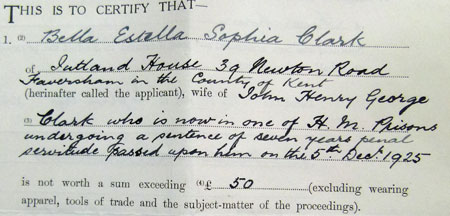 THIS IS TO CERTIFY THAT—
1. (1) Bella Estella Sophia Clark
of Jutland House 39 Newton Road
Faversham in the Country of Kent
(hereinafter called the applicant), wife of John Henry George
(2) Clark who is now in one of H. M. Prisons
undergoing a sentence of seven years penal
servitude passed upon him on the 5th Decr 1925
is not worth a sum exceeding (3) £ 50 (excluding wearing
apparel, tools of trade and the subject-matter of the proceedings).